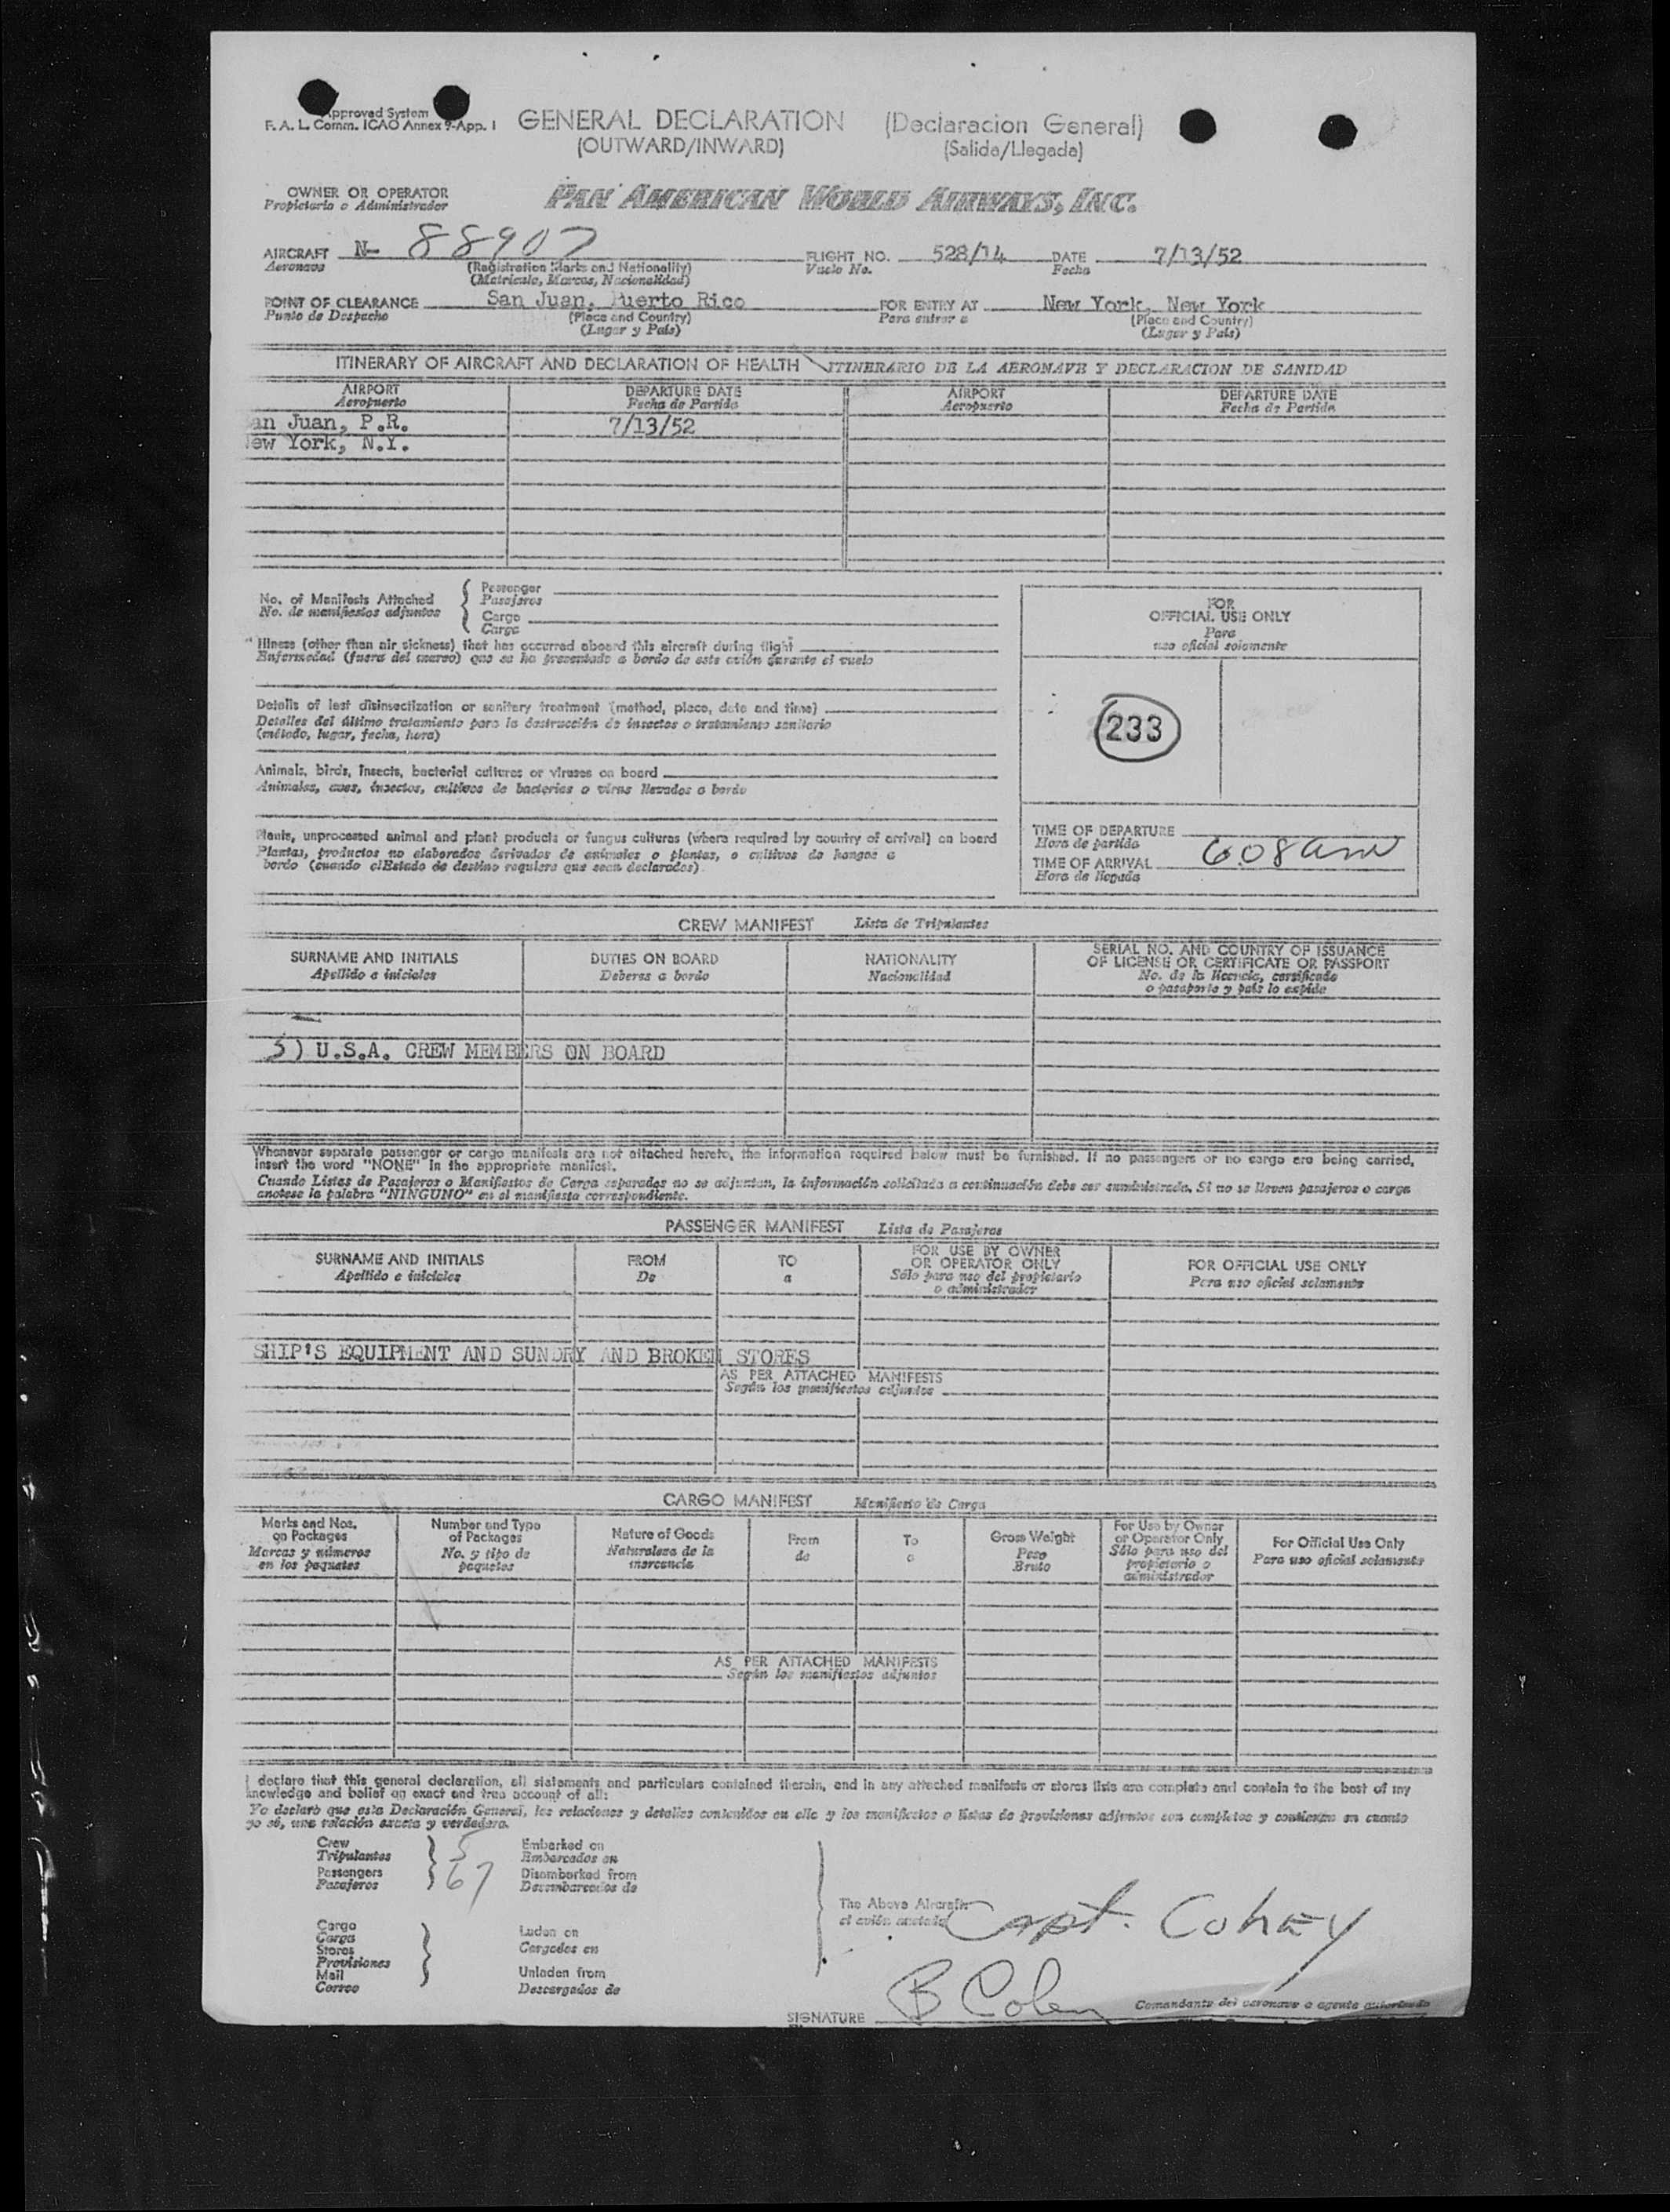 Approved System
F. A. L. Comm. ICAO Annex 9-App. 1
GENERAL DECLARATION (Declaracion General)
(OUTWARD/INWARD) (Salida/Llegada)
OWNER OR OPERATOR
Propietario o Administrador
PAN AMERICAN WORLD AIRWAYS, INC.
AIRCRAFT N- 88907 FLIGHT NO. 528/14 DATE 7/13/52
Aeronave (Registration Marks and Nationality) Vuelo No. Fecha
(Matricula, Marcas, Nacionalidad)
POINT OF CLEARANCE San Juan, Puerto Rico FOR ENTRY AT New York, New York
Punto de Despacho (Place and Country) Para entrar a (Place and Country)
(Lugar y País) (Lugar y País)
ITINERARY OF AIRCRAFT AND DECLARATION OF HEALTH ITINERARIO DE LA AERONAVE Y DECLARACION DE SANIDAD
AIRPORT DEPARTURE DATE AIRPORT DEPARTURE DATE
Aeropuerto Fecha de Partida Aeropuerto Fecha de Partida
an Juan, P.R. 7/13/52
ew York, N.Y.
No. of Manifests Attached
No. de manifiestos adjuntos
Passenger
Pasajeros
Cargo
Carga
Illness (other than air sickness) that has occurred aboard this aircraft during flight
Enfermedad (fuera del mareo) que se ha presentado a bordo de este avión durante el vuelo
Details of last disinsectization or sanitary treatment (method, place, date and time)
Detalles del último tratamiento para la destrucción de insectos o tratamiento sanitario
(método, lugar, fecha, hora)
Animals, birds, insects, bacterial cultures or viruses on board
Animales, aves, insectos, cultivos de bacterias o virus llevados a bordo
Plants, unprocessed animal and plant products or fungus cultures (where required by country of arrival) on board
Plantas, productos no elaborados derivados de animales o plantas, o cultivos de hongos a
bordo (cuando el Estado de destino requiera que sean declarados)
FOR
OFFICIAL USE ONLY
Para
uso oficial solamente
233
TIME OF DEPARTURE
Hora de partida
TIME OF ARRIVAL 6:08 am
Hora de llegada
CREW MANIFEST Lista de Tripulantes
SURNAME AND INITIALS DUTIES ON BOARD NATIONALITY SERIAL NO. AND COUNTRY OF ISSUANCE
OF LICENSE OR CERTIFICATE OR PASSPORT
Apellido e iniciales Deberes a bordo Nacionalidad No. de la licencia, certificado
o pasaporte y país lo expide
5) U.S.A. CREW MEMBERS ON BOARD
Whenever separate passenger or cargo manifests are not attached hereto, the information required below must be furnished. If no passengers or no cargo are being carried,
insert the word "NONE" in the appropriate manifest.
Cuando Listas de Pasajeros o Manifiestos de Carga separados no se adjuntan, la información solicitada a continuación debe ser suministrada. Si no se lleven pasajeros o carga
anotese la palabra "NINGUNO" en el manifiesto correspondiente.
PASSENGER MANIFEST Lista de Pasajeros
SURNAME AND INITIALS FROM TO FOR USE BY OWNER
OR OPERATOR ONLY FOR OFFICIAL USE ONLY
Apellido e iniciales De a Sólo para uso del propietario
o administrador Para uso oficial solamente
SHIP'S EQUIPMENT AND SUNDRY AND BROKEN STORES
AS PER ATTACHED MANIFESTS
Según los manifiestos adjuntos
CARGO MANIFEST Manifiesto de Carga
Marks and Nos.
on Packages
Marcas y números
en los paquetes
Number and Type
of Packages
No. y tipo de
paquetes
Nature of Goods
Naturaleza de la
mercancía
From
de
To
a
Gross Weight
Peso
Bruto
For Use by Owner
or Operator Only
Sólo para uso del
propietario o
administrador
For Official Use Only
Para uso oficial solamente
AS PER ATTACHED MANIFESTS
Según los manifiestos adjuntos
I declare that this general declaration, all statements and particulars contained therein, and in any attached manifests or stores lists are complete and contain to the best of my
knowledge and belief an exact and true account of all:
Yo declaro que esta Declaración General, los relaciones y detalles contenidos en ella y los manifiestos o listas de provisiones adjuntos son completos y contienen en cuanto
yo sé, una relación exacta y verdadera.
Crew
Tripulantes 5
Passengers
Pasajeros 67
Embarked on
Embarcados en
Disembarked from
Desembarcados de
Cargo
Carga
Stores
Provisiones
Mail
Correo
Laden on
Cargados en
Unladen from
Descargados de
The Above Aircraft
el avión anotado
Capt. Cohey
SIGNATURE B Cohey Comandante del aeronave o agente autorizado